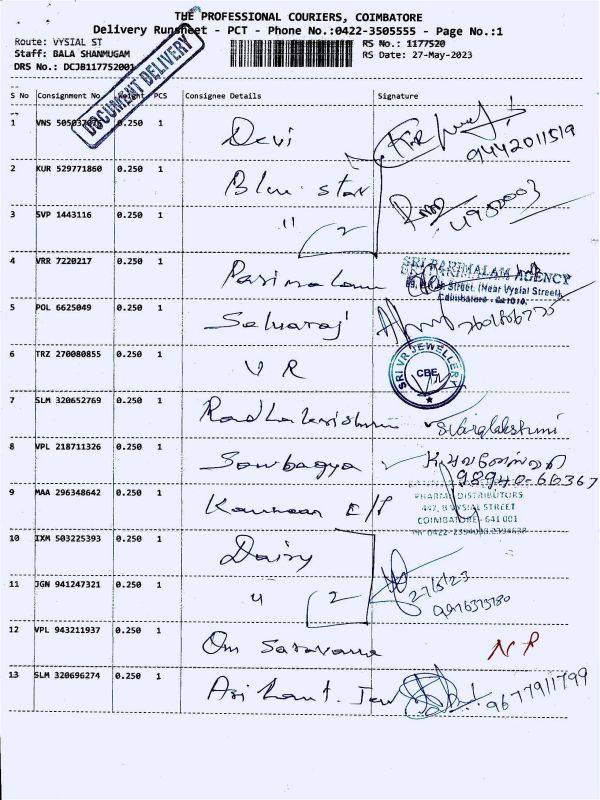 THE PROFESSIONAL COURIERS, COIMBATORE
Delivery Runsheet - PCT - Phone No.:0422-3505555 - Page No.:1
Route: VYSIAL ST RS No.: 1177520
Staff: BALA SHANMUGAM RS Date: 27-May-2023
DRS No.: DCJB117752001
DOCUMENT DELIVERY
S No Consignment No. Weight PCS Consignee Details Signature
1 VNS 0.250 1 Devi
9442011519
2 KUR 529771860 0.250 1 Blue star
3 SVP 1443116 0.250 1 " 2
4 VRR 7220217 0.250 1 Parimalam
SRI PARIMALAM AGENCY
Street, (Near Vysial Street),
Coimbatore
5 POL 6625049 0.250 1 Selvaraj
6 TRZ 270080855 0.250 1 V R
SRI VR JEWELLERY
CBE
7 SLM 320652769 0.250 1 Radhakrishna
8 VPL 218711326 0.250 1 Sowbagya
98940-66367
9 MAA 296348642 0.250 1 Kannan E/P
PHARMA DISTRIBUTORS
447, B VYSIAL STREET
COIMBATORE - 641 001
10 IXM 503225393 0.250 1 Dairy
27/5/23
11 JGN 941247321 0.250 1 " 2
12 VPL 943211937 0.250 1 Om Saravana NR
13 SLM 320696274 0.250 1 Arihant. Jew 9677911799